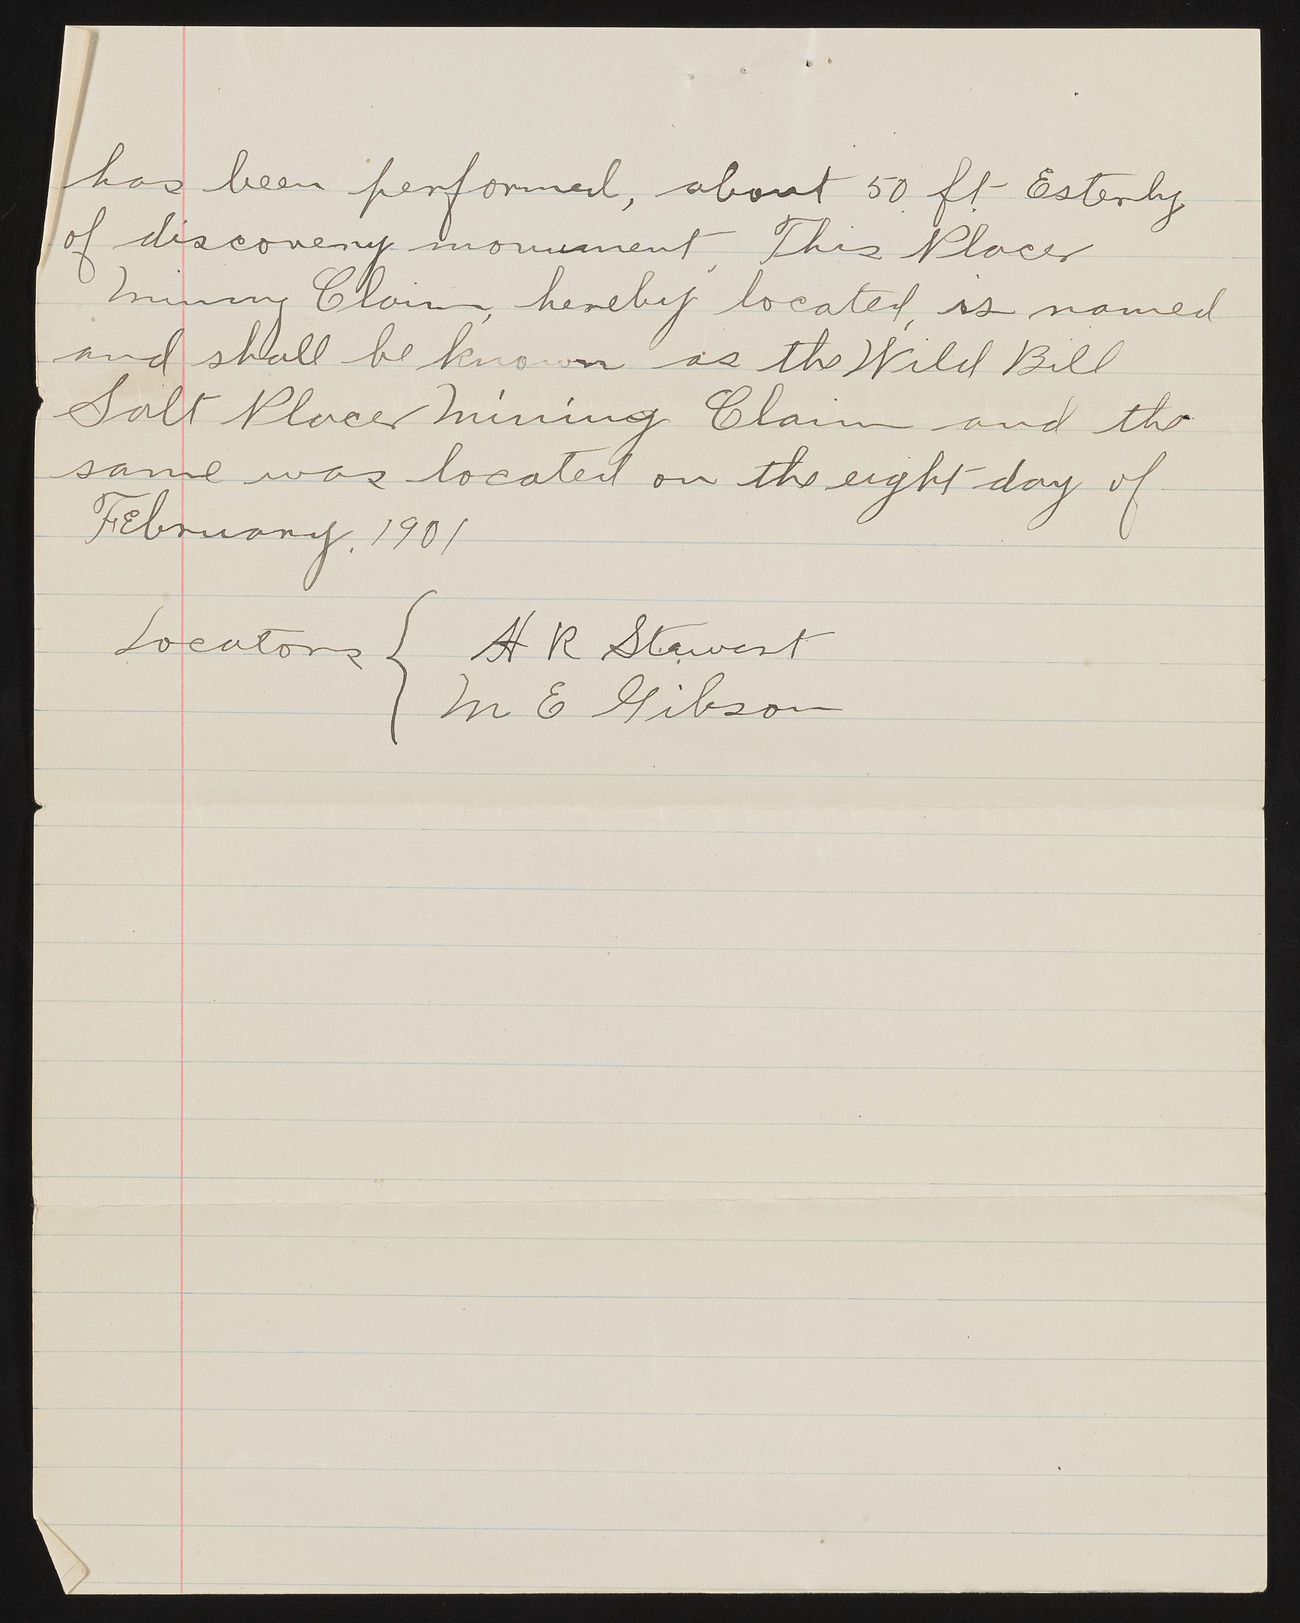 has been performed, about 50 ft Esterly
of discovery monument, This Placer
Mining Claim, hereby located, is named
and shall be known as the Wild Bill
Salt Placer Mining Claim and the
same was located on the eight day of
February, 1901
Locators { H R Stewart
M E Gibson